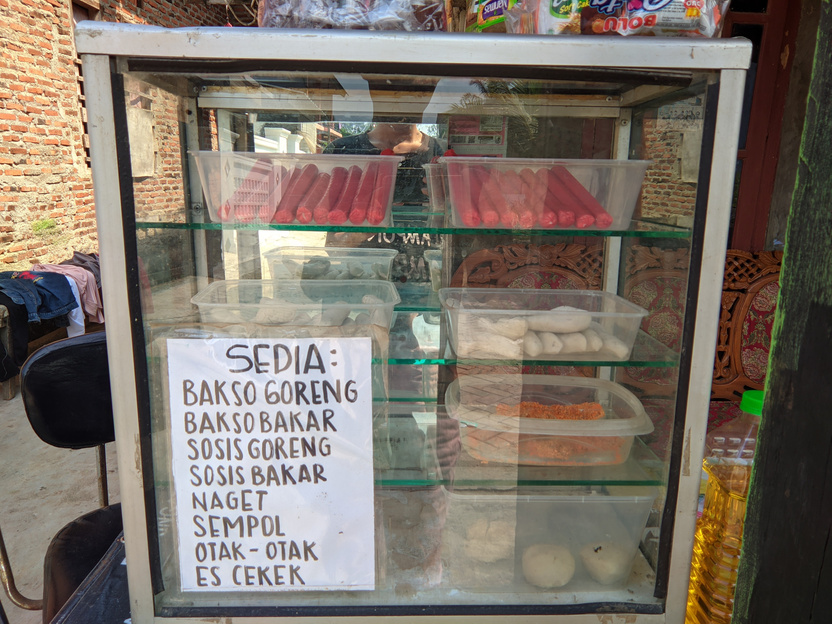 SEDIA:
BAKSO GORENG
BAKSO BAKAR
SOSIS GORENG
SOSIS BAKAR
NAGET
SEMPOL
OTAK-OTAK
ES CEKEK